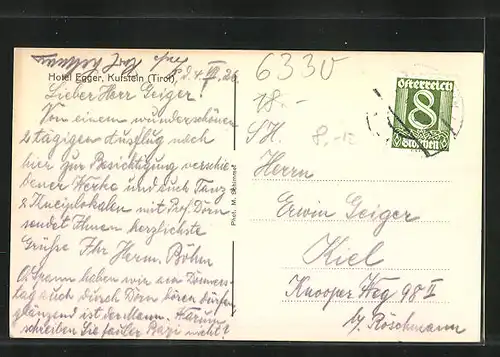 Hotel Egger, Kufstein (Tirol).
24. VII. 26
Lieber Herr Geiger!
Von einem wunderschönen
2 tägigen Ausflug nach
hier zur Besichtigung verschie
dener Werke und auch Tanz
& Kneiplokalen mit Prof. Dörn
sendet Ihnen herzlichste
Grüße Ihr Herm. Böhm
haben wir am Donners
tag auch Dörn hören dürfen
glänzend ist der Mann. Warum
schreiben Sie fauler Bazi nicht?
Phot. M.
6330
18.-
SH. 8,-
Österreich
8
Groschen
Herrn
Erwin Geiger
Kiel
Knooper Weg 98 II
by Röschmann